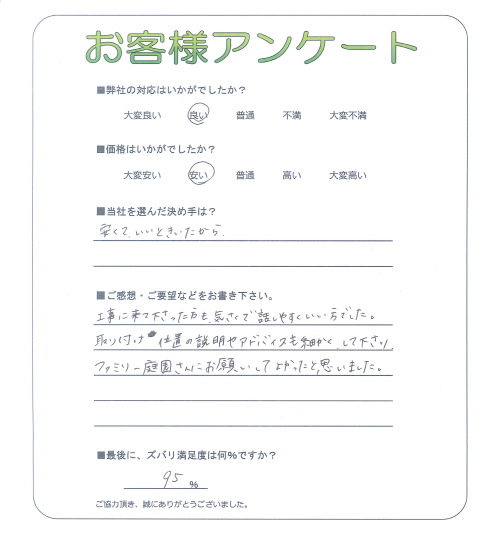 お客様アンケート
■弊社の対応はいかがでしたか？
大変良い 良い 普通 不満 大変不満
■価格はいかがでしたか？
大変安い 安い 普通 高い 大変高い
■当社を選んだ決め手は？
安くて、いいときいたから。
■ご感想・ご要望などをお書き下さい。
工事に来て下さった方も、気さくで話しやすくいい方でした。
取り付け位置の説明やアドバイスも細かくして下さり
ファミリー庭園さんにお願いしてよかったと思いました。
■最後に、ズバリ満足度は何%ですか？
95 %
ご協力頂き、誠にありがとうございました。